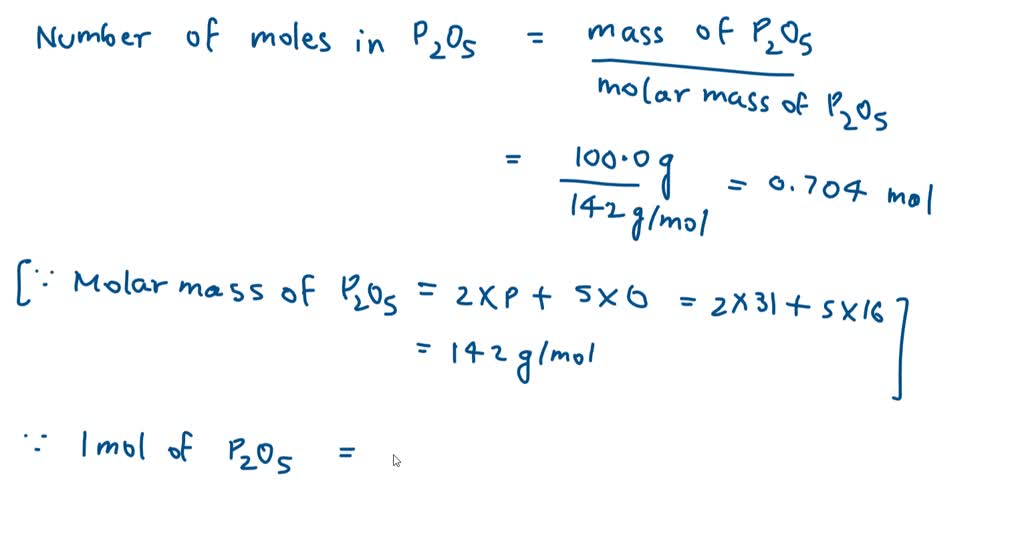 Number of moles in P₂O₅ = mass of P₂O₅ / molar mass of P₂O₅
= 100.0 g / 142 g/mol = 0.704 mol
[∵ Molar mass of P₂O₅ = 2×P + 5×O = 2×31 + 5×16
= 142 g/mol ]
∵ 1 mol of P₂O₅ =